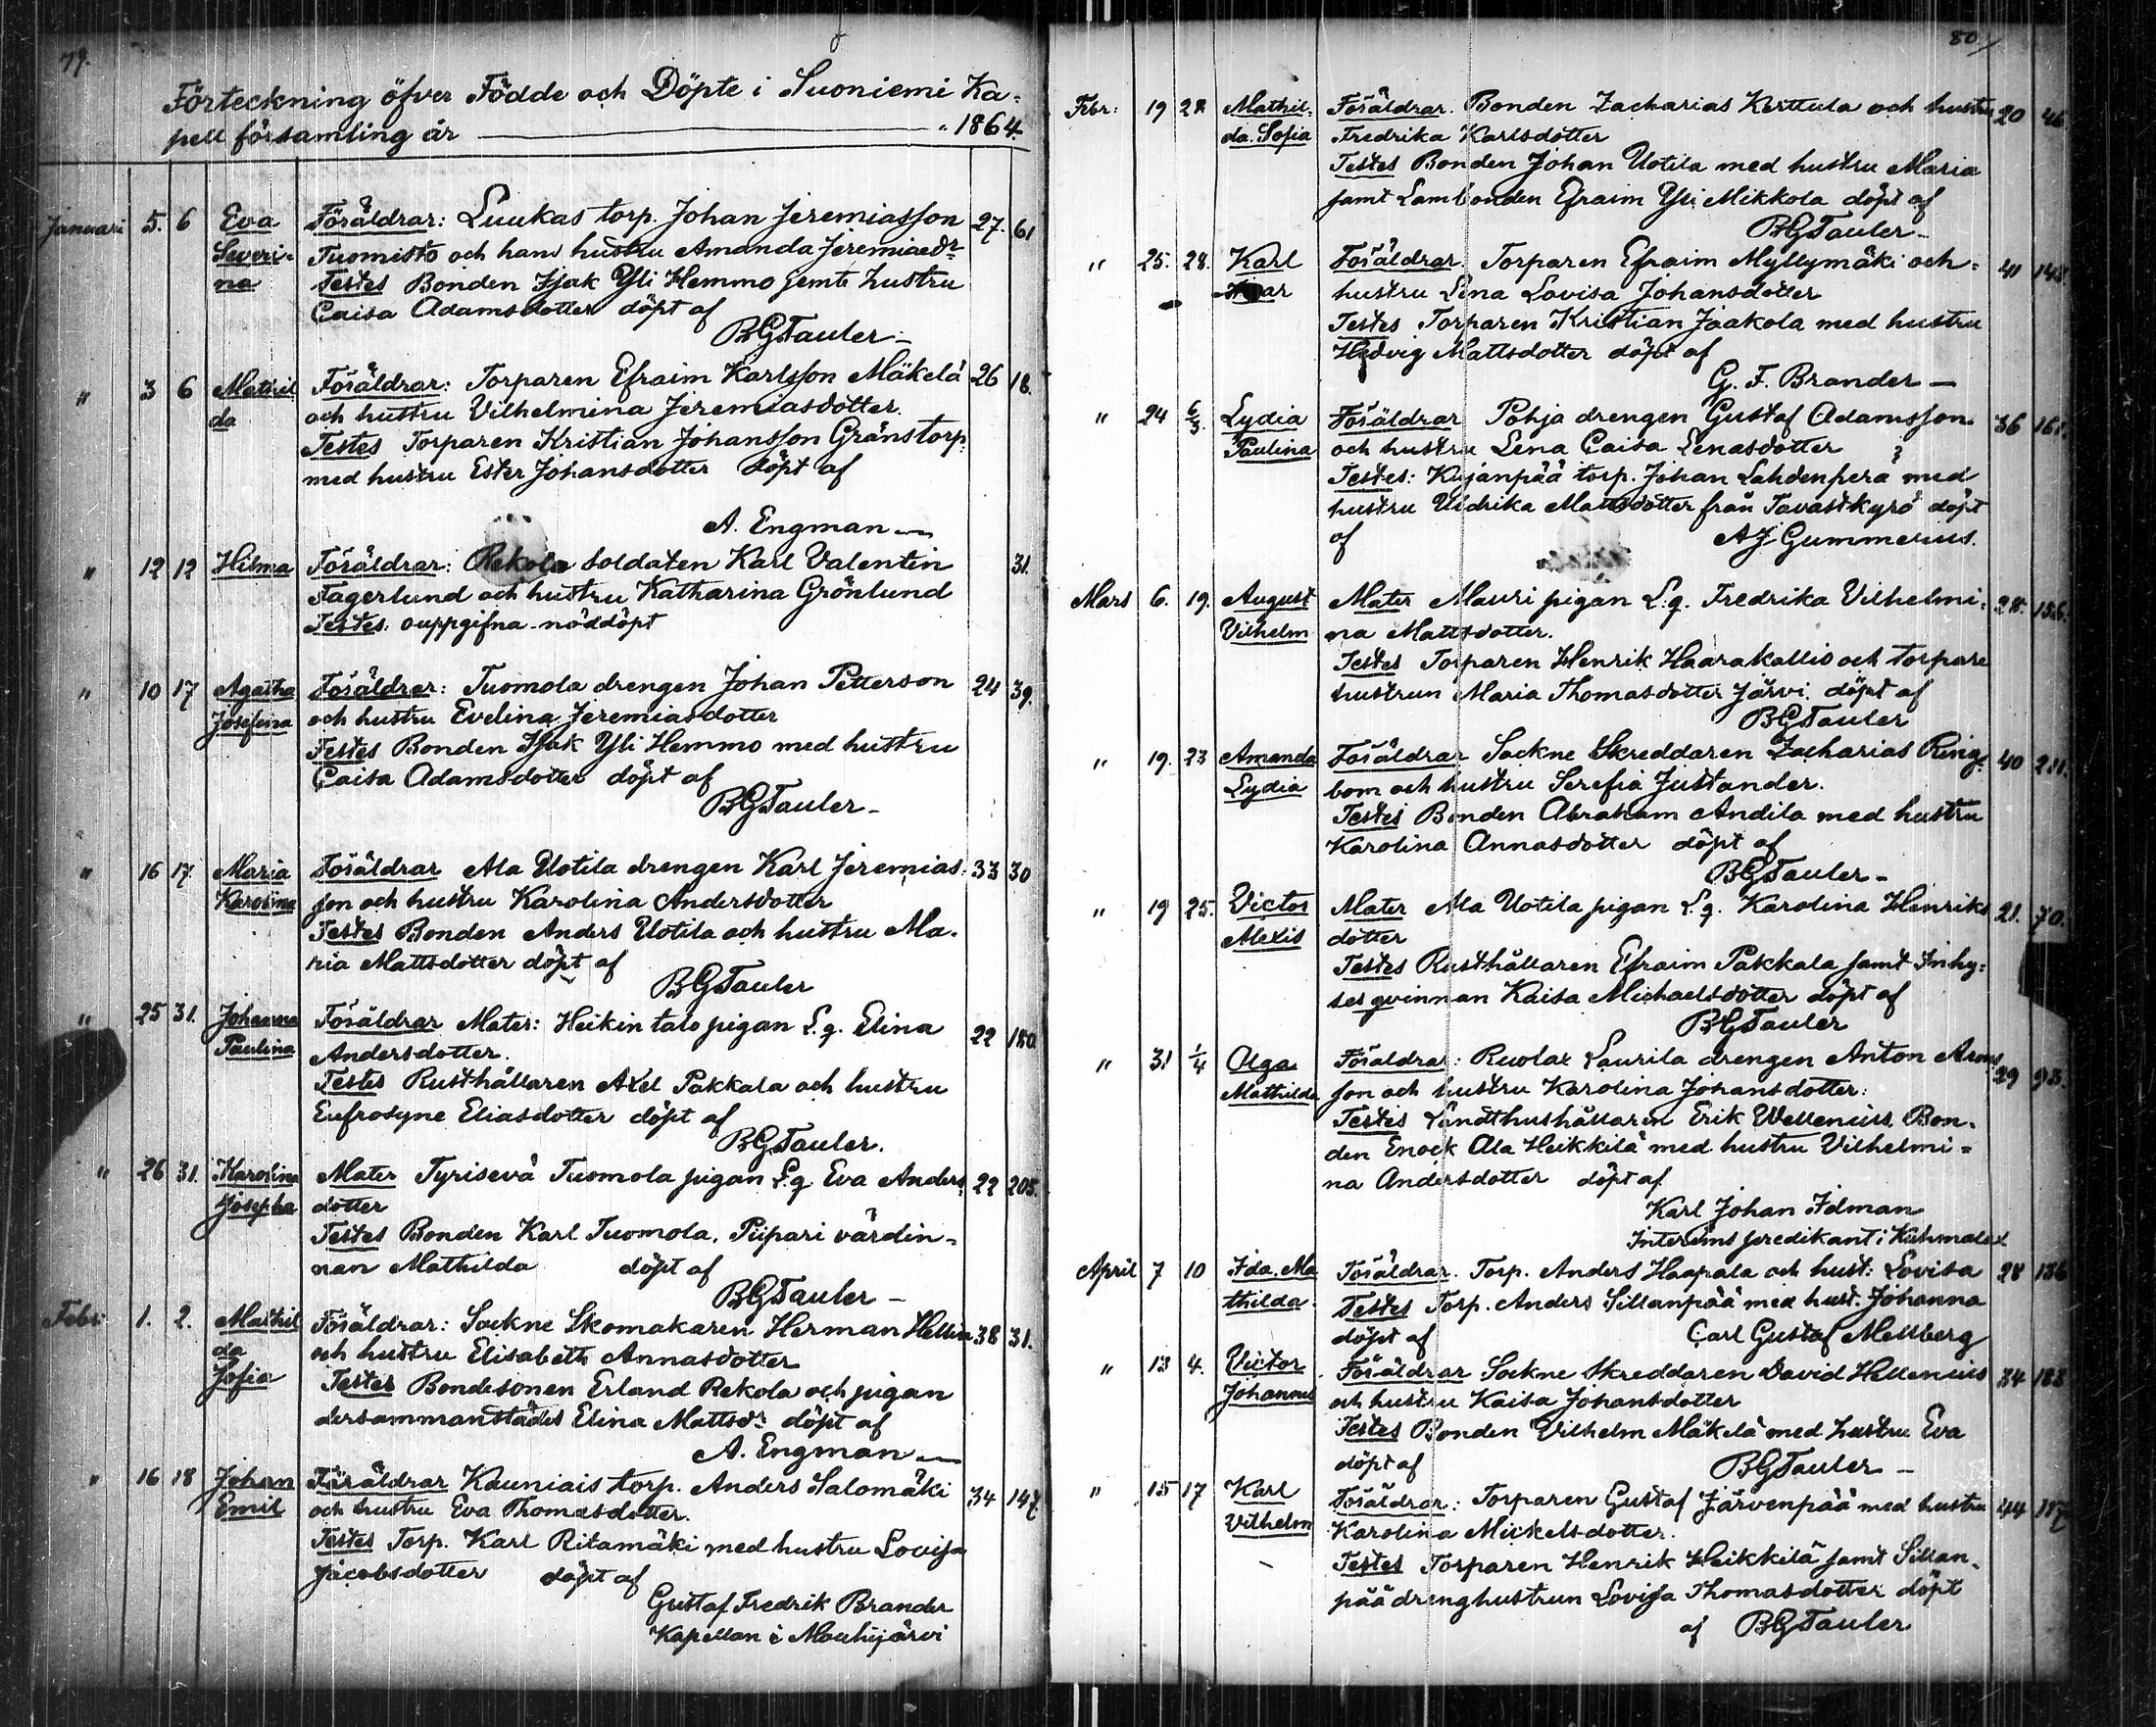 79.
Förteckning öfver Födde och Döpte i Suoniemi Ka=
pell församling år 1864.
Januari 5. 6 Eva Föräldrar: Luukas torp. Johan Jeremiasson 27. 61
Severi- Tuomisto och hans hustru Amanda Jeremiaedr
na Testes Bonden Isak Yli Hemmo jemte hustru
Caisa Adamsdotter döpt af
BGTauler
" 3 6 Mathil Föräldrar: Torparen Efraim Karlsson Mäkelä 26 18.
da och hustru Vilhelmina Jeremiasdotter.
Testes Torparen Kristian Johansson Gränstorp
med hustru Ester Johansdotter döpt af
A. Engman
" 12 12 Hilma Föräldrar: Rekola soldaten Karl Valentin 31.
Fagerlund och hustru Katharina Grönlund
Testes: ouppgifna - nöddöpt
" 10 17 Agatha Föräldrar: Tuomola drengen Johan Petterson 24 39.
Josefina och hustru Evelina Jeremiasdotter
Testes Bonden Isak Yli Hemmo med hustru
Caisa Adamsdotter döpt af
BGTauler
" 16 17. Maria Föräldrar Ala Uotila drengen Karl Jeremias= 33 30
Karolina son och hustru Karolina Andersdotter
Testes Bonden Anders Uotila och hustru Ma-
ria Mattsdotter döpt af
BGTauler
" 25 31. Johanna Föräldrar Mater: Heikin talo pigan L.q. Elina 22 180
Paulina Andersdotter.
Testes Rusthållaren Axel Pakkala och hustru
Eufrosyne Eliasdotter döpt af
BGTauler.
" 26 31. Karolina Mater Tyrisevä Tuomola pigan L.q Eva Anders= 22 205.
Josepha dotter
Testes Bonden Karl Tuomola, Piipari värdin=
nan Mathilda döpt af
BGTauler
Febr 1. 2. Mathil Föräldrar: Sockne Skomakaren Herman Hellin 38 31.
da och hustru Elisabeth Annasdotter
Sofia Testes Bondesonen Erland Rekola och pigan
dersammanstädes Elina Mattsdr döpt af
A. Engman
" 16 18 Johan Föräldrar Kauniais torp. Anders Salomäki 34 147.
Emil och hustru Eva Thomasdotter.
Testes Torp. Karl Ritamäki med hustru Lovisa
Jacobsdotter döpt af
Gustaf Fredrik Brander
Kapellan i Mouhijärvi
80
Febr: 19 28 Mathil- Föräldrar. Bonden Zacharias Kerttula och hustru 20 46
da Sofia Fredrika Karlsdotter
Testes Bonden Johan Uotila med hustru Maria
samt Lambonden Efraim Yli Mikkola döpt af
BGTauler
" 25. 28. Karl Föräldrar Torparen Efraim Myllymäki och= 41 148.
hustru Lena Lovisa Johansdotter
Testes Torparen Kristian Jaakola med hustru
Hedvig Mattsdotter döpt af
G. F. Brander
" 24 6/3. Lydia Föräldrar Pohja drengen Gustaf Adamsson 36
Paulina och hustru Lena Caisa Lenasdotter
Testes: Kujanpää torp. Johan Lahdenperä med
hustru Uldrika Mattsdotter från Tavastkyrö döpt
af AJ Gummerus.
Mars 6. 19. August Mater Mauri pigan L.q. Fredrika Vilhelmi= 28. 186.
Vilhelm na Mattsdotter.
Testes Torparen Henrik Haarakallio och torpare
hustrun Maria Thomasdotter Järvi döpt af
BGTauler
" 19. 23 Amanda Föräldrar Sockne Skreddaren Zacharias Ring= 40 211.
Lydia bom och hustru Serefia Justander.
Testes Bonden Abraham Andila med hustru
Karolina Annasdotter döpt af
BGTauler
" 19 25. Victor Mater Ala Uotila pigan L.q. Karolina Henriks 21. 70.
Alexis dotter
Testes Rusthållaren Efraim Pakkala samt Inhy=
ses qvinnan Kaisa Michaelsdotter döpt af
BGTauler
" 31 1/4 Olga Föräldrar: Ruolax Laurila drengen Anton Arons 29 93.
Mathilda son och hustru Karolina Johansdotter.
Testes Landthushållaren Erik Wellenius, Bon-
den Enock Ala Heikkilä med hustru Vilhelmi=
na Andersdotter döpt af
Karl Johan Idman
Interims predikant i Kuhmalax
April 7 10 Ida Ma Föräldrar. Torp. Anders Haapala och hust: Lovisa 28 136
thilda. Testes Torp. Anders Sillanpää med hust. Johanna
döpt af Carl Gustaf Mellberg
" 13 4. Victor Föräldrar Sockne Skreddaren David Hellenius 34 183
Johannes och hustru Kaisa Johansdotter
Testes Bonden Vilhelm Mäkelä med hustru Eva
döpt af BGTauler
" 15 17 Karl Föräldrar: Torparen Gustaf Järvenpää med hustru 44 117
Vilhelm Karolina Mickelsdotter.
Testes Torparen Henrik Heikkilä samt Sillan-
pää drenghustrun Lovisa Thomasdotter döpt
af BGTauler